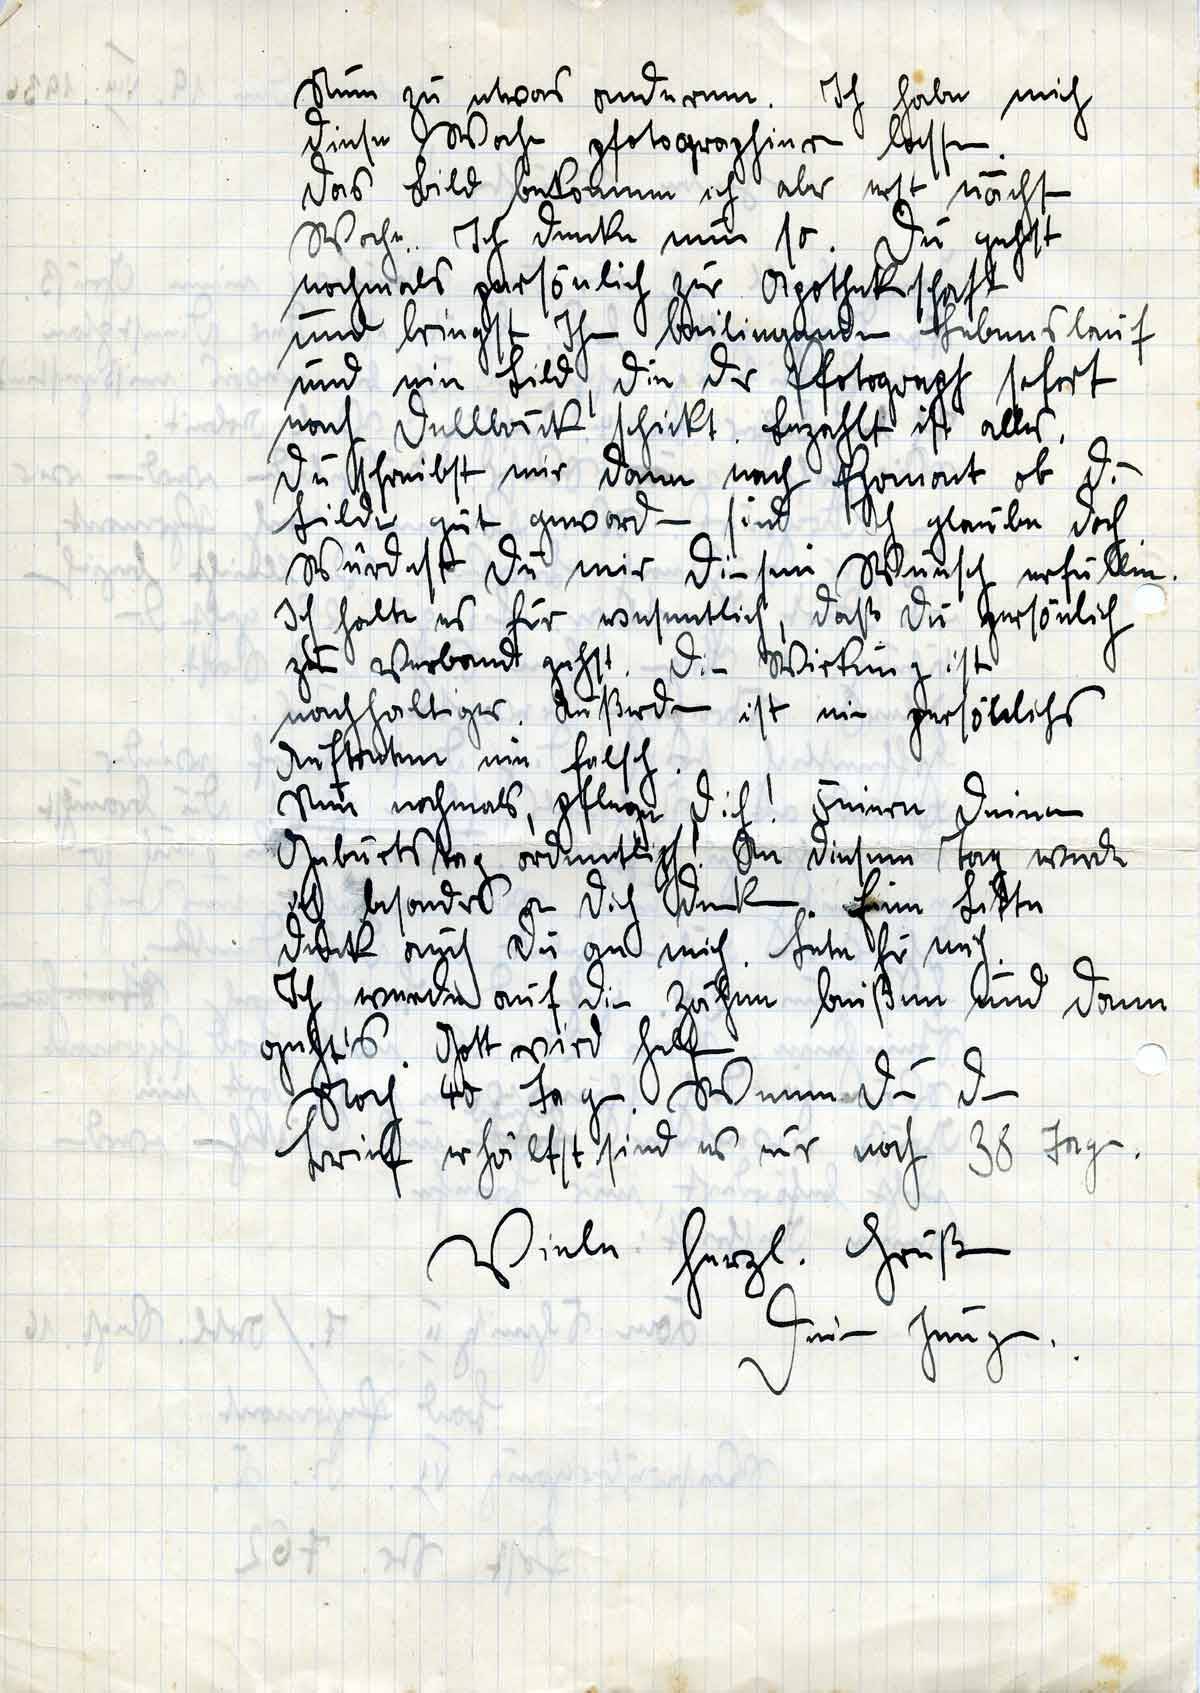 Nun zu etwas anderem. Ich habe mich
diese Woche photographieren lassen.
Das Bild bekomme ich aber erst nächste
Woche. Ich denke nun so. Du gehst
nochmals persönlich zur Apothekerschaft
und bringst Ihr beiliegenden Lebenslauf
und ein Bild, die der Photograph sofort
nach schickt. Bezahlt ist alles.
Du schreibst mir dann nach Pyrmont ob die
Bilder gut geworden sind. Ich glaube doch
Würdest Du mir diesen Wunsch erfüllen.
Ich halte es für wesentlich, daß Du persönlich
zum Verband gehst. Die Wirkung ist
nachhaltiger. Außerdem ist ein persönliches
Auftreten nie falsch.
Nun nochmals, pflege Dich! Feiere Deinen
Geburtstag ordentlich! An diesem Tag werde
ich besonders an Dich denken. Eine Bitte
denk auch Du an mich. Bete für mich.
Ich werde auf die Zähne beißen und dann
geht's. Gott wird helfen
Noch 40 Tage. Wenn Du den
Brief erhältst sind es nur noch 38 Tage.
Viele herzl. Grüße
Dein Junge.